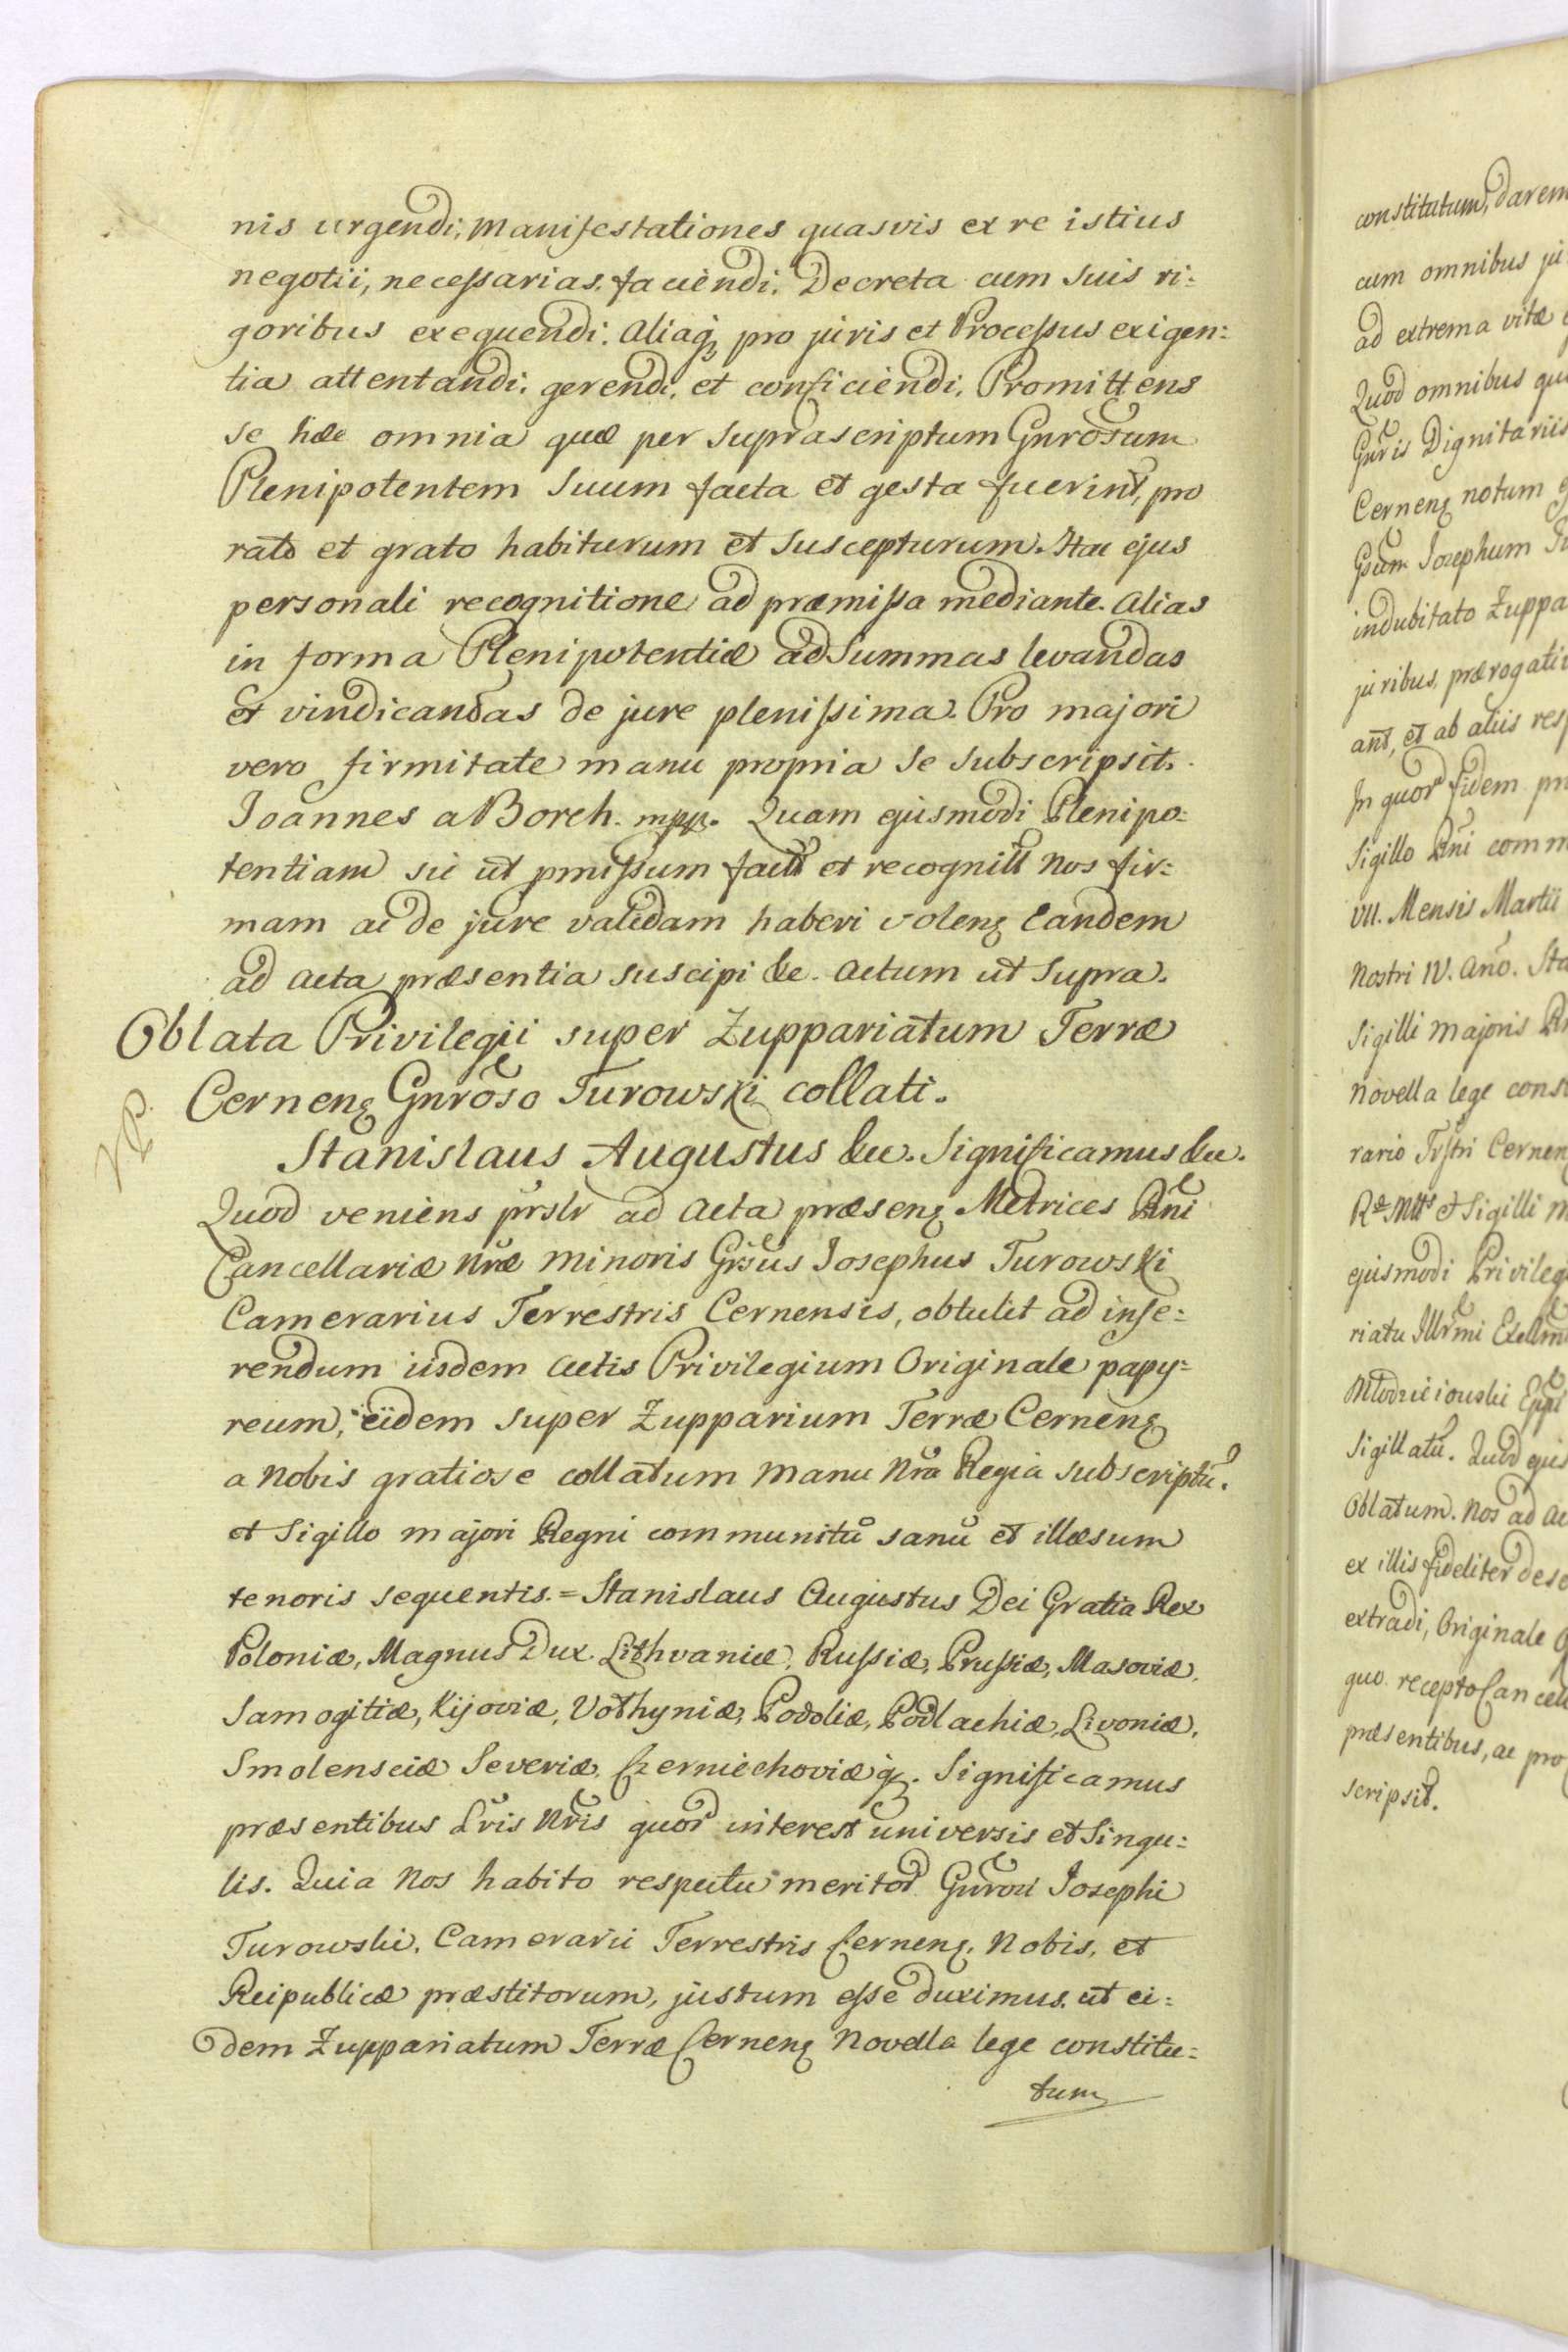 nis urgendi, Manifestationes quasvis ex re istius
negotii, necessarias faciendi. Decreta cum suis ri=
goribus exequendi. Aliaq; pro juris et Processus exigen=
tia attentandi. gerendi, et conficiendi. Promittens
se hæc omnia quæ per Suprascriptum Gnrosum
Plenipotentem Suum facta et gesta fuerint, pro
rato et grato habiturum et Suscepturum. Hac ejus
personali recognitione ad præmissa mediante. Alias
in forma Plenipotentiæ ad Summas levandas
et vindicandas de jure plenissima. Pro majori
vero firmitate manu propria se subscripsit.
Joannes a Borch. mpp. Quam ejusmodi Plenipo=
tentiam sic ut pmissum factã et recognitã Nos fir=
mam ac de jure validam haberi volenꝫ Eandem
ad Acta præsentia suscipi &c. Actum ut Supra.
Oblata Privilegii super Zuppariatum Terræ
Cernenꝫ Gnroso Turowski collati.
Stanislaus Augustus &c. Significamus &c.
Quod veniens prslr ad Acta præsenꝫ Metrices Rni
Cancellariæ Nræ Minoris Grsus Josephus Turowski
Camerarius Terrestris Cernensis, obtulit ad inse=
rendum iisdem Actis Privilegium Originale papy=
reum, eidem super Zupparium Terræ Cernenꝫ
a Nobis gratiose collatum Manu Nra Regia subscriptũ.
et Sigillo majori Regni communitũ sanũ et illæsum
tenoris sequentis. = Stanislaus Augustus Dei Gratia Rex
Poloniæ, Magnus Dux Lithvaniæ, Russiæ, Prussiæ, Masoviæ,
Samogitiæ, Kijoviæ, Vołhyniæ, Podoliæ, Podlachiæ, Livoniæ,
Smolensciæ Severiæ, Czerniechoviæq;. Significamus
præsentibus Lris Nris quor interest universis et Singu=
lis. Quia Nos habito respectu meritor Gnrosi Josephi
Turowski, Camerarii Terrestris Cernenꝫ, Nobis, et
Reipublicæ præstitorum, justum esse duximus, ut ei=
dem Zuppariatum Terræ Cernenꝫ Novella lege constitu=
tum
constitutum, darem
cum omnibus ju
ad extrema vitæ
Quod omnibus qu
Gnris Dignitariis
Cernenꝫ notum
Gsum Josephum Tu
indubitato Zuppa
juribus, prærogati
ant, et ab aliis res
In quor fidem pr
Sigillo Rni comm
VII. Mensis Martii
Nostri IV. Año. Sta
Sigilli Majoris R
Novella lege cons
rario Trstri Cernen
Rꝫ Mtts et Sigilli m
ejusmodi Privileg
riatu Illrmi Excellm
Młodzieiouski Eppi
Sigillatũ. Quod ejus
Oblatum. Nos ad Ac
ex illis fideliter desc
extradi, Originale
quo recepto Cancell
præsentibus, ac pro
scripsit.